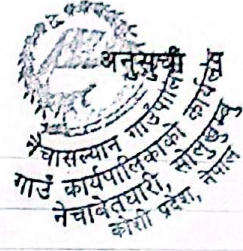 अनुसूची
नेचासल्यान गाउँपालिका
गाउँ कार्यपालिकाको कार्यालय
नेचाबेतघारी, सोलुखुम्बु
कोशी प्रदेश, नेपाल